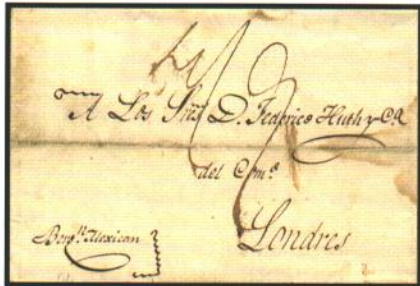 A Los Sres. D. Federico Huth y Ca.
del Como.
Londres
Bergn. Mexican